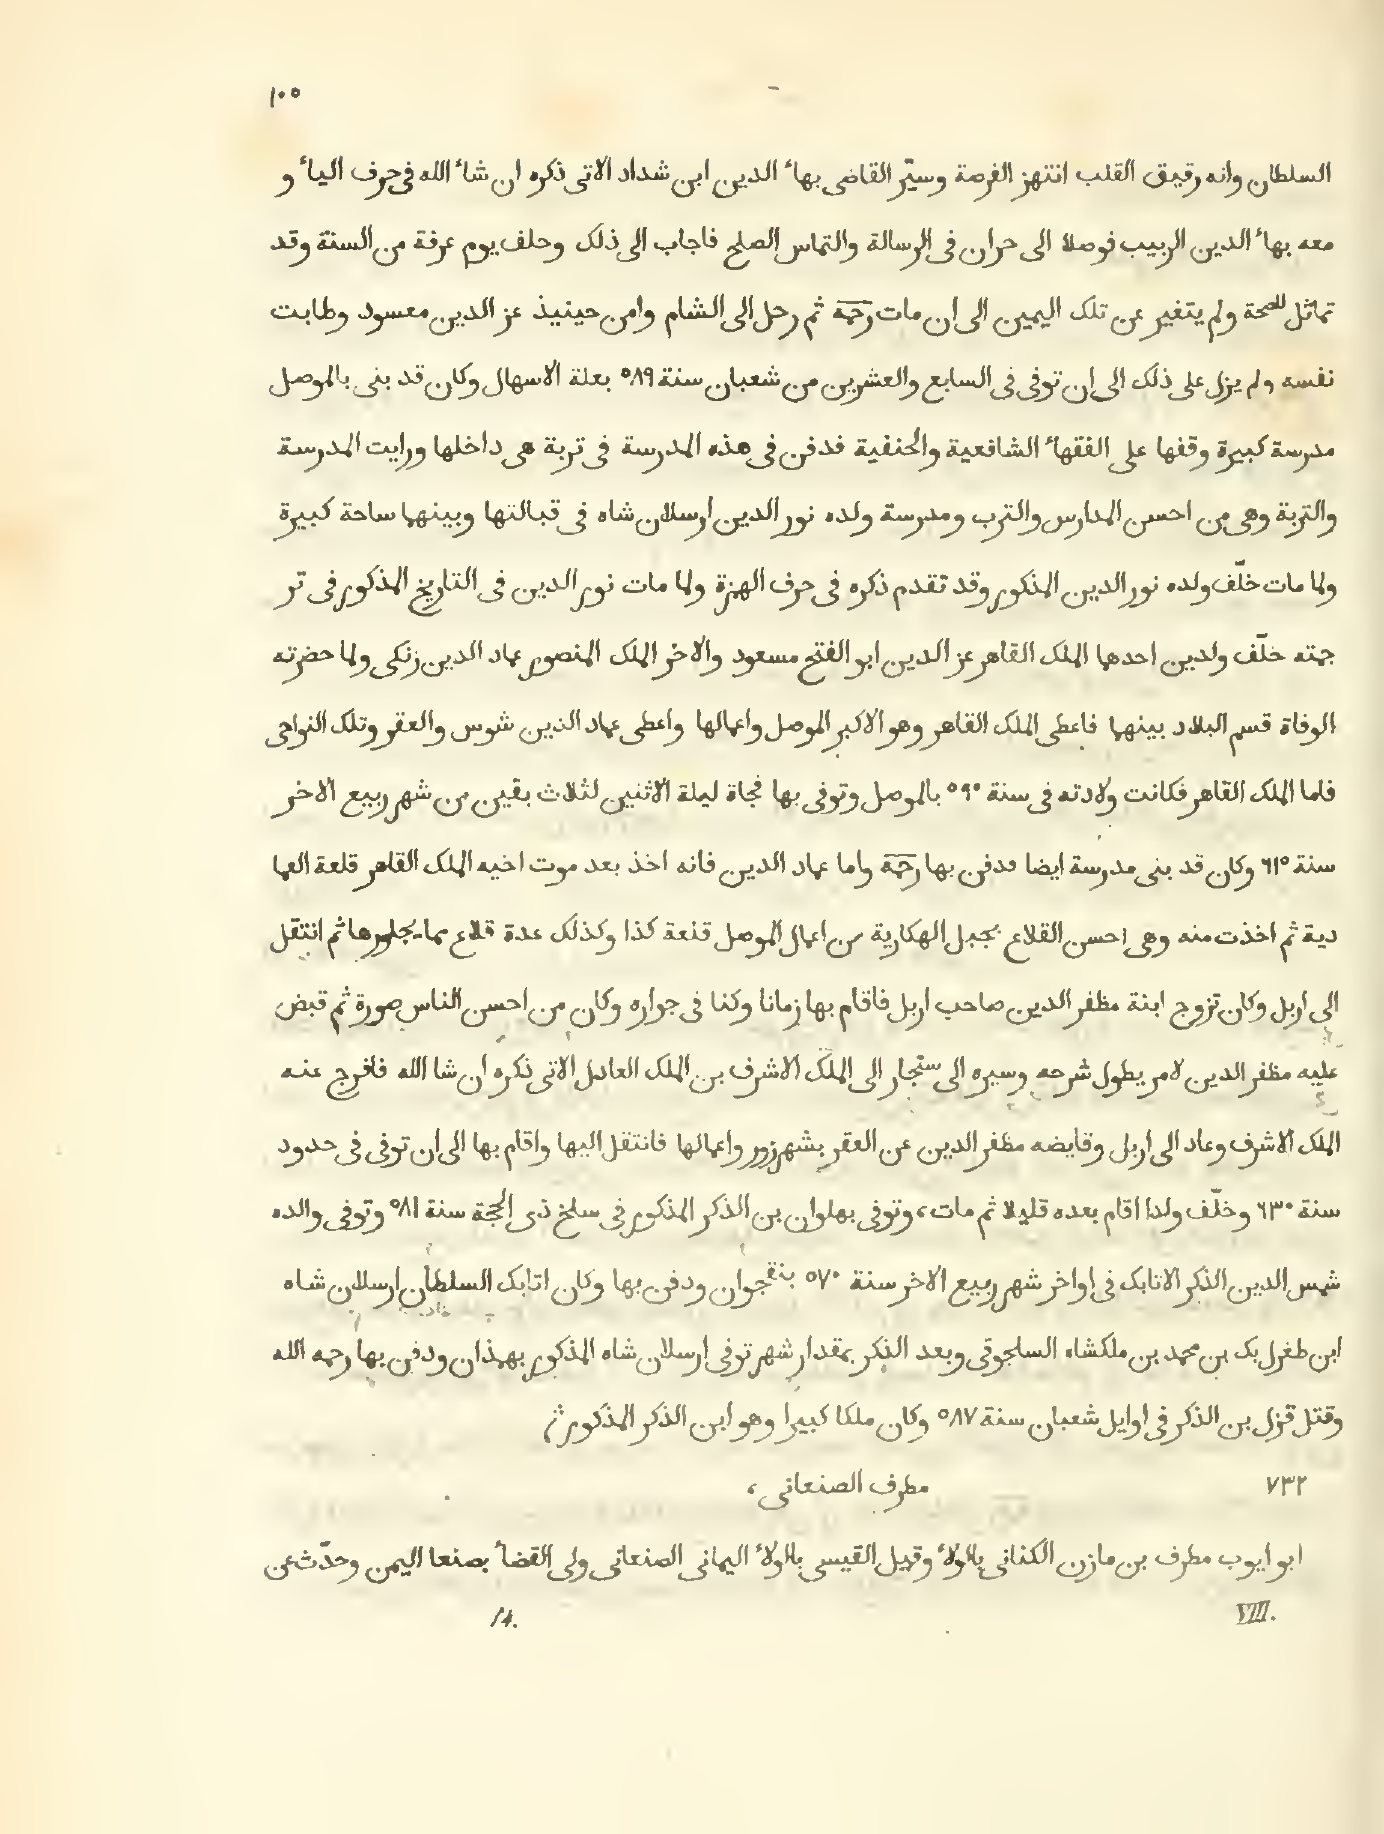 ١٠٥
السلطان وانه رقيق القلب انتهز الفرصة وسيّر القاضى بهاء الدين ابن شداد الاتى ذكره ان شاء الله فى حرف الياء و
معه بهاء الدين الربيب فوصلا الى حران فى الرسالة والتماس الصلح فاجاب الى ذلك وحلف يوم عرفة من السنة وقد
تماثل للصحة ولم يتغير عن تلك اليمين الى ان مات رحمه ثم رحل الى الشام وامن حينيذ عز الدين معسود وطابت
نفسه ولم يزل على ذلك الى ان توفى فى السابع والعشرين من شعبان سنة ٥٨٩ بعلة الاسهال وكان قد بنى بالموصل
مدرسة كبيرة وقفها على الفقهاء الشافعية والحنفية فدفن فى هذه المدرسة فى تربة هى داخلها ورايت المدرسة
والتربة وهى من احسن المدارس والترب ومدرسة ولده نور الدين ارسلان شاه فى قبالتها وبينهما ساحة كبيرة
ولما مات خلّف ولده نور الدين المذكور وقد تقدم ذكره فى حرف الهمزة ولما مات نور الدين فى التاريخ المذكور فى تر
جمته خلّف ولدين احدهما الملك القاهر عز الدين ابو الفتح مسعود والاخر الملك المنصور عماد الدين زنكى ولما حضرته
الوفاة قسم البلاد بينهما فاعطى الملك القاهر وهو الاكبر الموصل واعمالها واعطى عماد الدين شوس والعقر وتلك النواحى
فاما الملك القاهر فكانت ولادته فى سنة ٥٩٠ بالموصل وتوفى بها فجاة ليلة الاثنين لثلاث بقين من شهر ربيع الاخر
سنة ٦١٥ وكان قد بنى مدرسة ايضا فدفن بها رحمه واما عماد الدين فانه اخذ بعد موت اخيه الملك القاهر قلعة العما
دية ثم اخذت منه وهى احسن القلاع بجبل الهكارية من اعمال الموصل قلعة كذا وكذلك عدة قلاع مما يجاورها ثم انتقل
الى اربل وكان تزوج ابنة مظفر الدين صاحب اربل فاقام بها زمانا وكنا فى جواره وكان من احسن الناس صورة ثم قبض
عليه مظفر الدين لامر يطول شرحه وسيره الى سنجار الى الملك الاشرف بن الملك العادل الاتى ذكره ان شا الله فافرج عنه
الملك الاشرف وعاد الى اربل وقايضه مظفر الدين عن العقر بشهرزور واعمالها فانتقل اليها واقام بها الى ان توفى فى حدود
سنة ٦٣٠ وخلّف ولدا اقام بعده قليلا ثم مات، وتوفى بهلوان بن الذكر المذكور فى سلخ ذى الحجة سنة ٥٨١ وتوفى والده
شمس الدين الذكر الاتابك فى اواخر شهر ربيع الاخر سنة ٥٧٠ بنقجوان ودفن بها وكان اتابك السلطان ارسلان شاه
ابن طغرل بك بن محمد بن ملكشاه السلجوقى وبعد الذكر بمقدار شهر توفى ارسلان شاه المذكور بهمذان ودفن بها رحمه الله
وقتل قزل بن الذكر فى اوايل شعبان سنة ٥٨٧ وكان ملكا كبيرا وهو ابن الذكر المذكور
٧٣٢ مطرف الصنعانى،
ابو ايوب مطرف بن مازن الكنانى بالولاء وقيل القيسى بالولاء اليمانى الصنعانى ولى القضاء بصنعا اليمن وحدّث عن
VIII. 14.